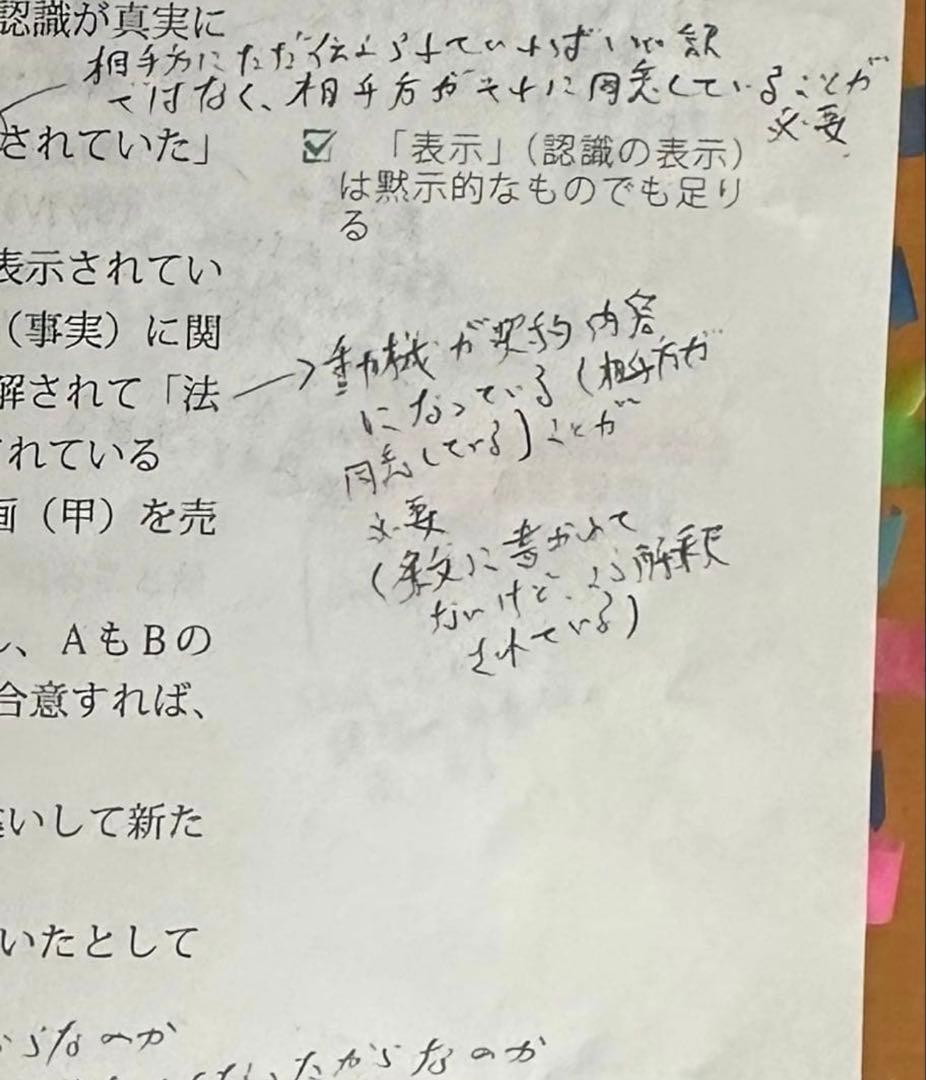 認識が真実に
相手方にただ伝えられていればいい訳
ではなく、相手方がそれに同意していることが
必要
されていた」
「表示」（認識の表示）
は黙示的なものでも足り
る
表示されてい
（事実）に関
解されて「法
れている
画（甲）を売
→動機が契約内容
になっている（相手方が
同意してる）ことが
必要
（条文に書かれて
ないけど、よう解釈
されている）
、ＡもＢの
合意すれば、
いして新た
いたとして
らなのか
たからなのか